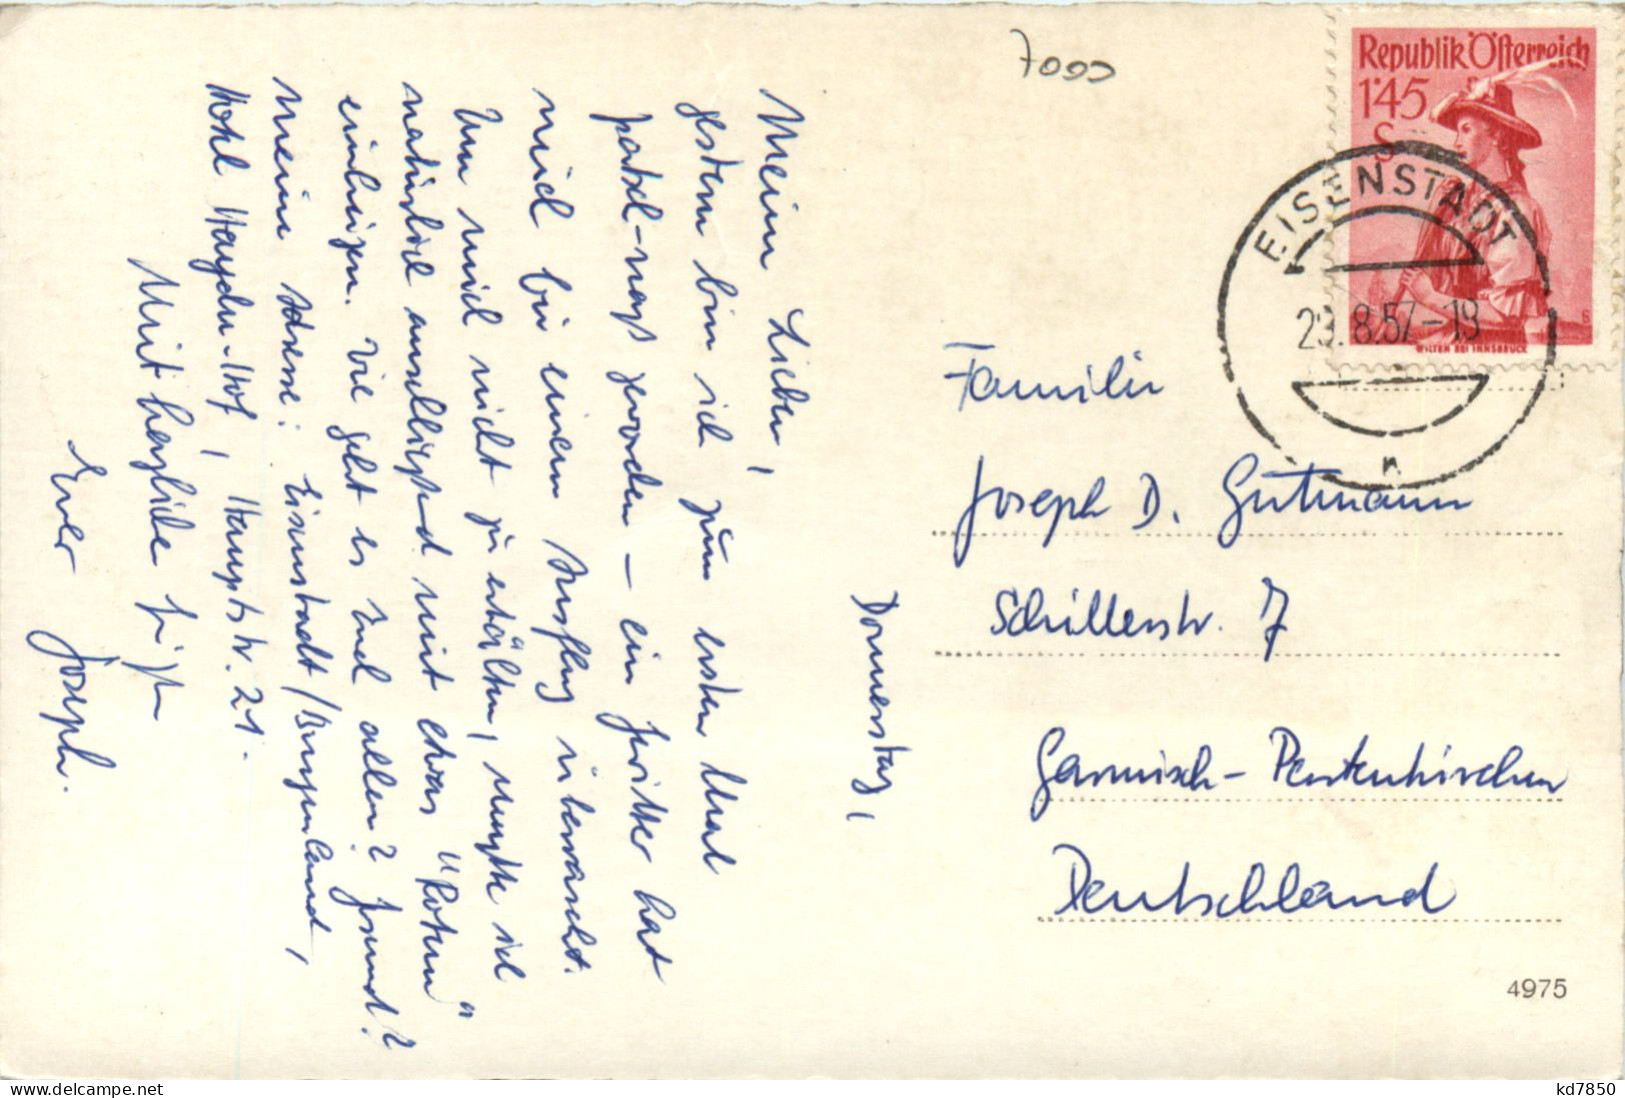 Donnerstag,
Meine Lieben,
gestern bin ich zum ersten Mal
patsch-naß geworden – ein Gewitter hat
mich bei einem Ausflug überrascht.
Um mich nicht zu erkälten, mußte ich
natürlich anschließend mit etwas "Rotem"
einheizen. Wie geht es Euch allen? Gesund?
Meine Adresse: Eisenstadt/Burgenland,
Hotel Haydn-Hof, Hauptstr. 21.
Mit herzliche Grüße
Euer Joseph.
7000
Republik Österreich
1'45
S
WILTEN BEI INNSBRUCK
EISENSTADT
29.8.57-19
n
Familie
Joseph D. Gutmann
Schillerstr. 7
Garmisch-Partenkirchen
Deutschland
4975
www.delcampe.net
kd7850